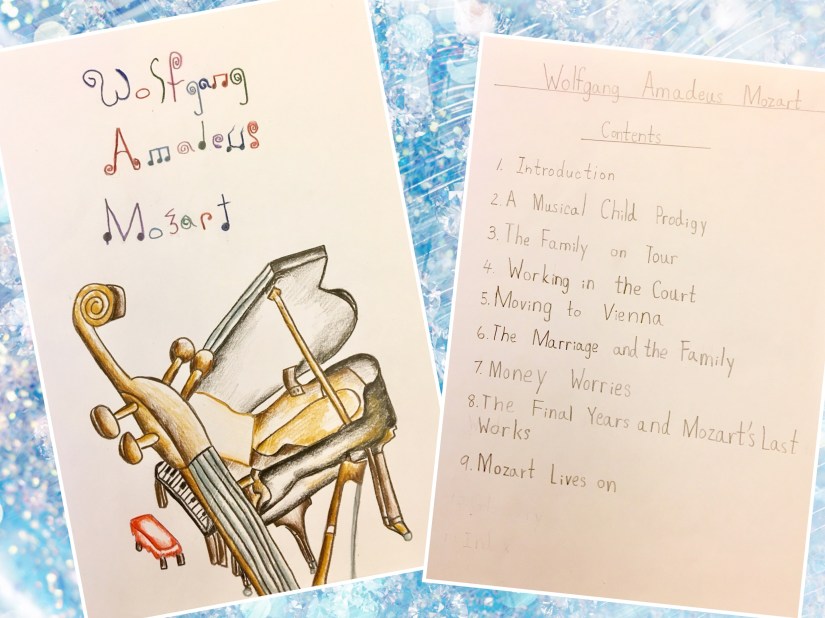 Wolfgang
Amadeus
Mozart
Wolfgang Amadeus Mozart
Contents
1. Introduction
2. A Musical Child Prodigy
3. The Family on Tour
4. Working in the Court
5. Moving to Vienna
6. The Marriage and the Family
7. Money Worries
8. The Final Years and Mozart's Last
Works
9. Mozart Lives on